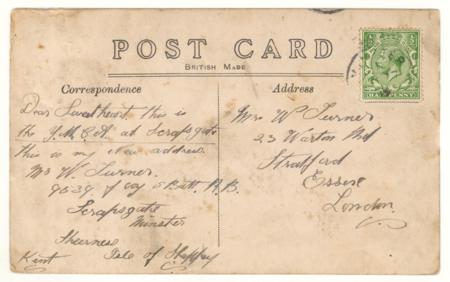 POST CARD
BRITISH MADE
Correspondence
Address
Dear Sweetheart this is
the Y.M.C.A. at Scrapsgate
this is my New address
Mr W Turner.
9539. Coy 5 Batt. R.B.
Scrapsgate
Minster
Sheerness
Isle of Sheppey
Kent
Mrs W Turner
23 Warton Rd
Stratford
Essex
London.
HALFPENNY